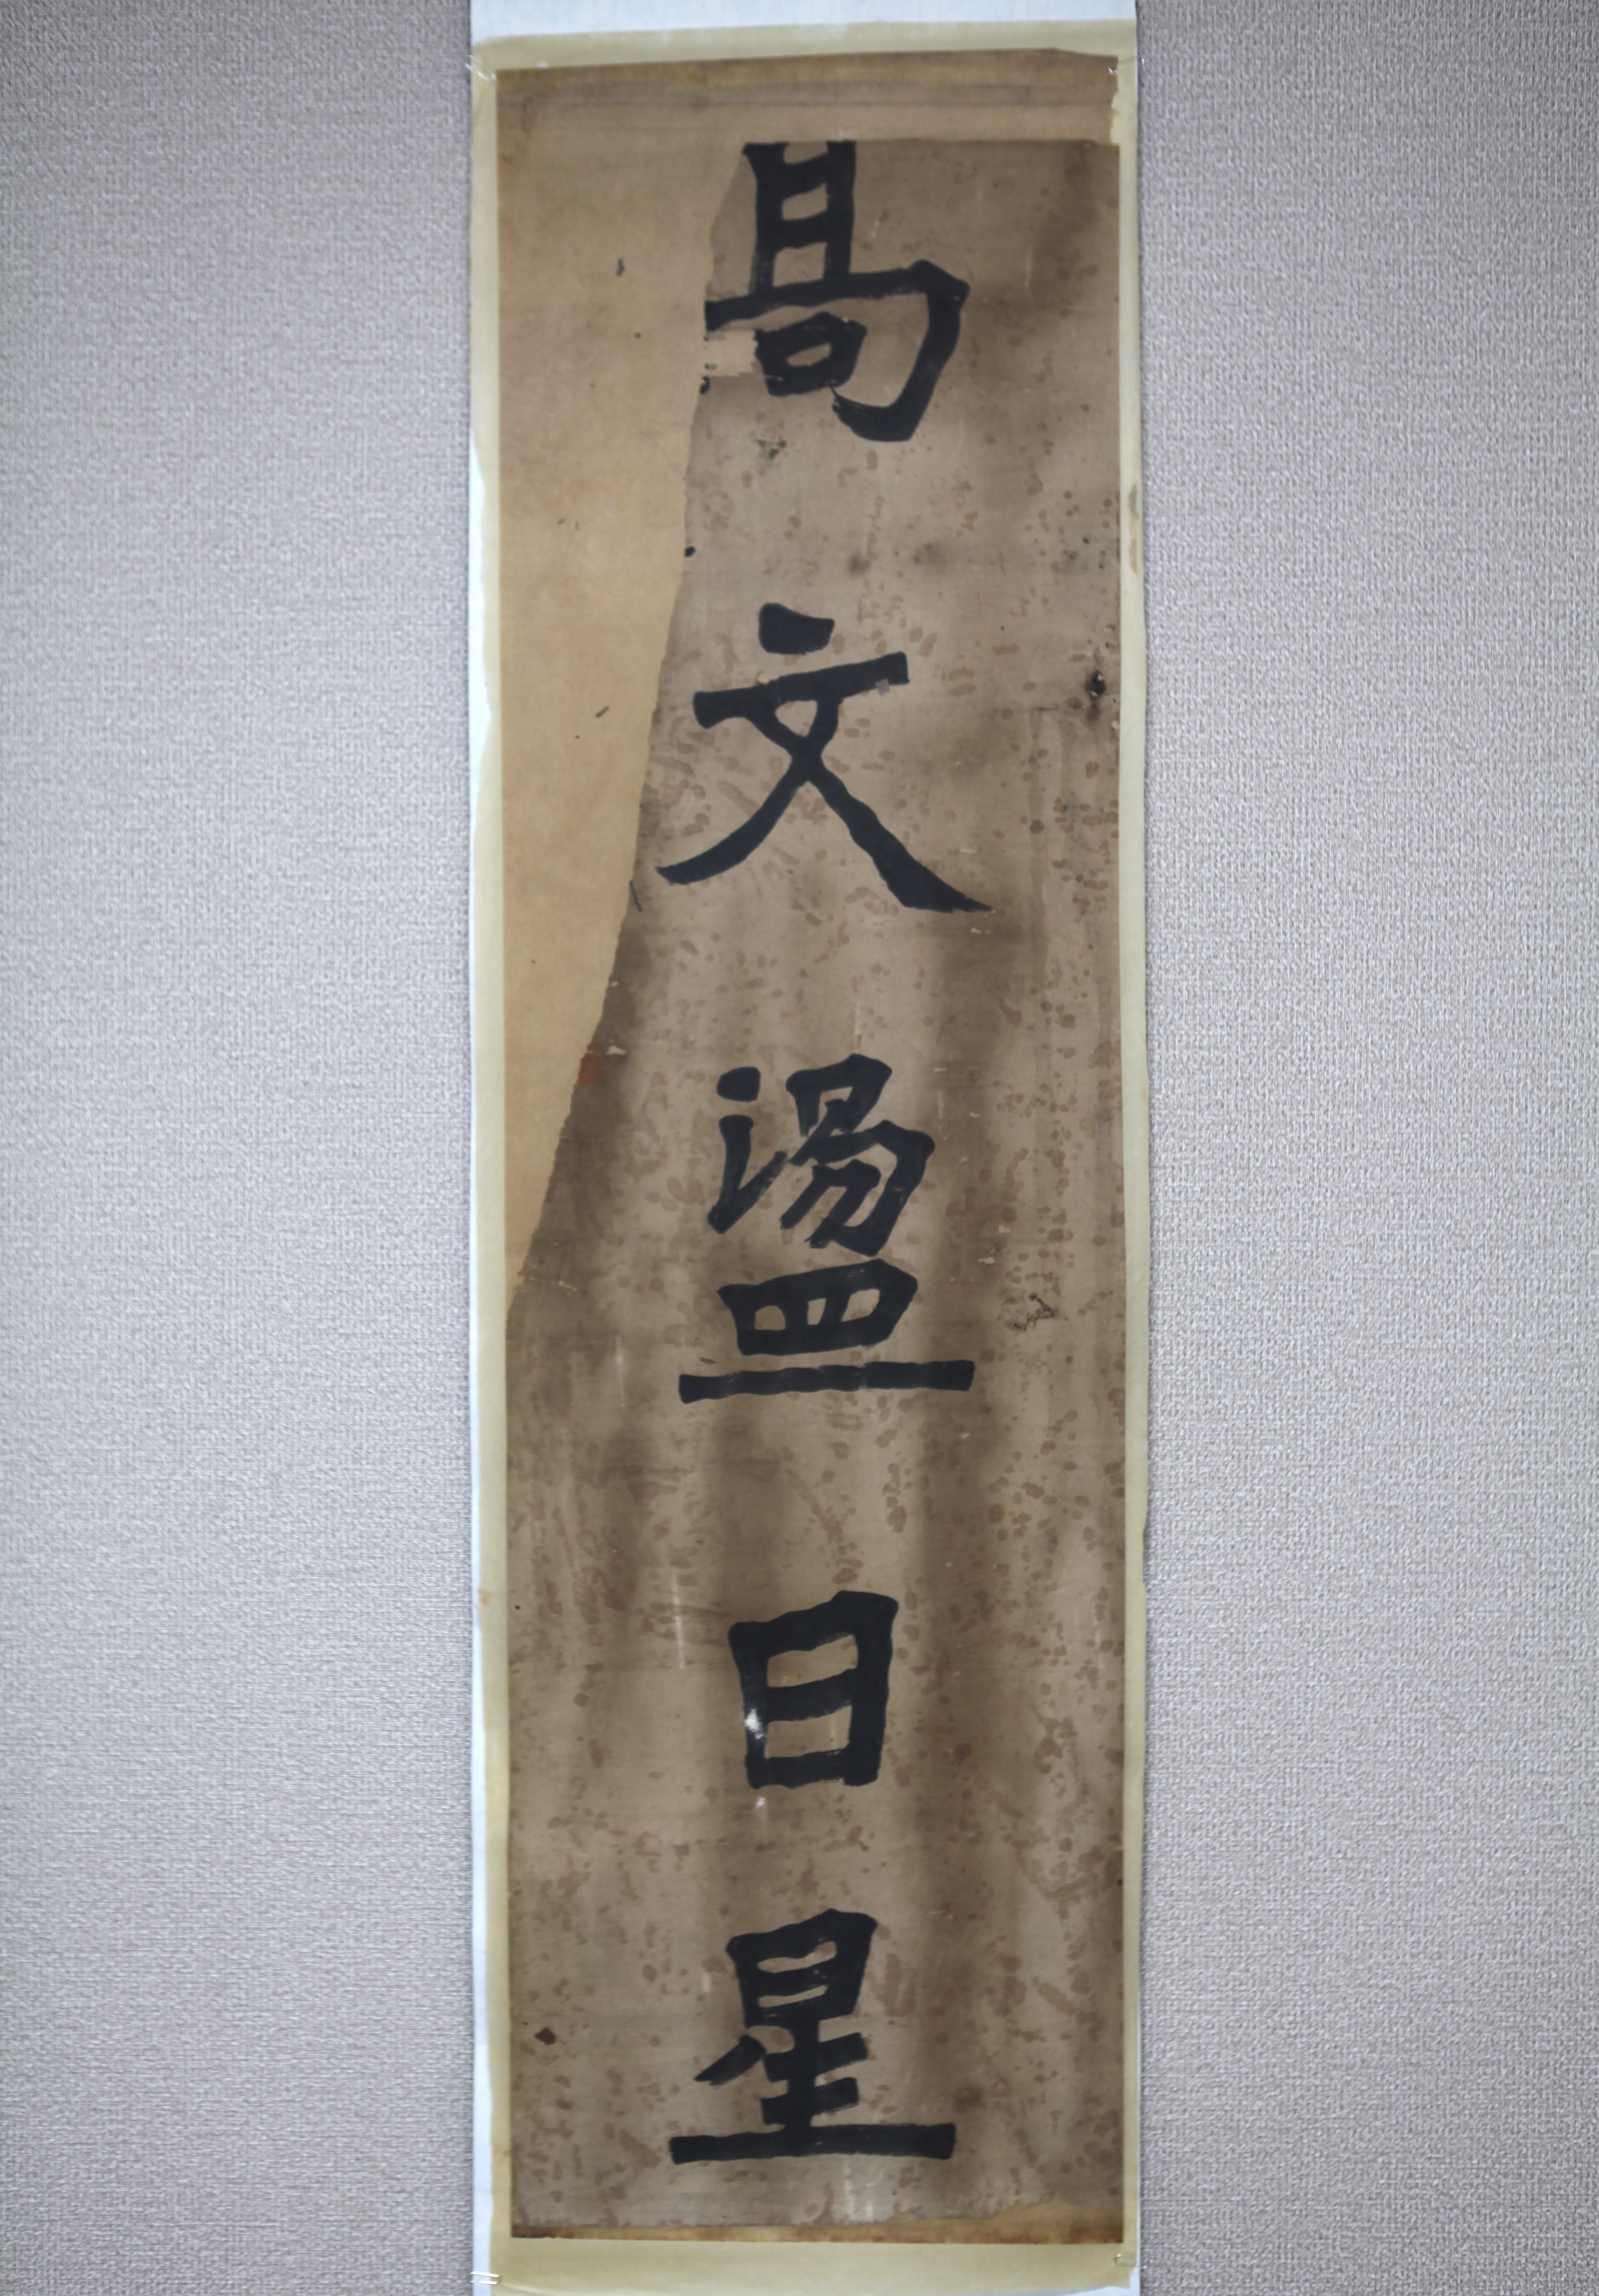 高文盪日星